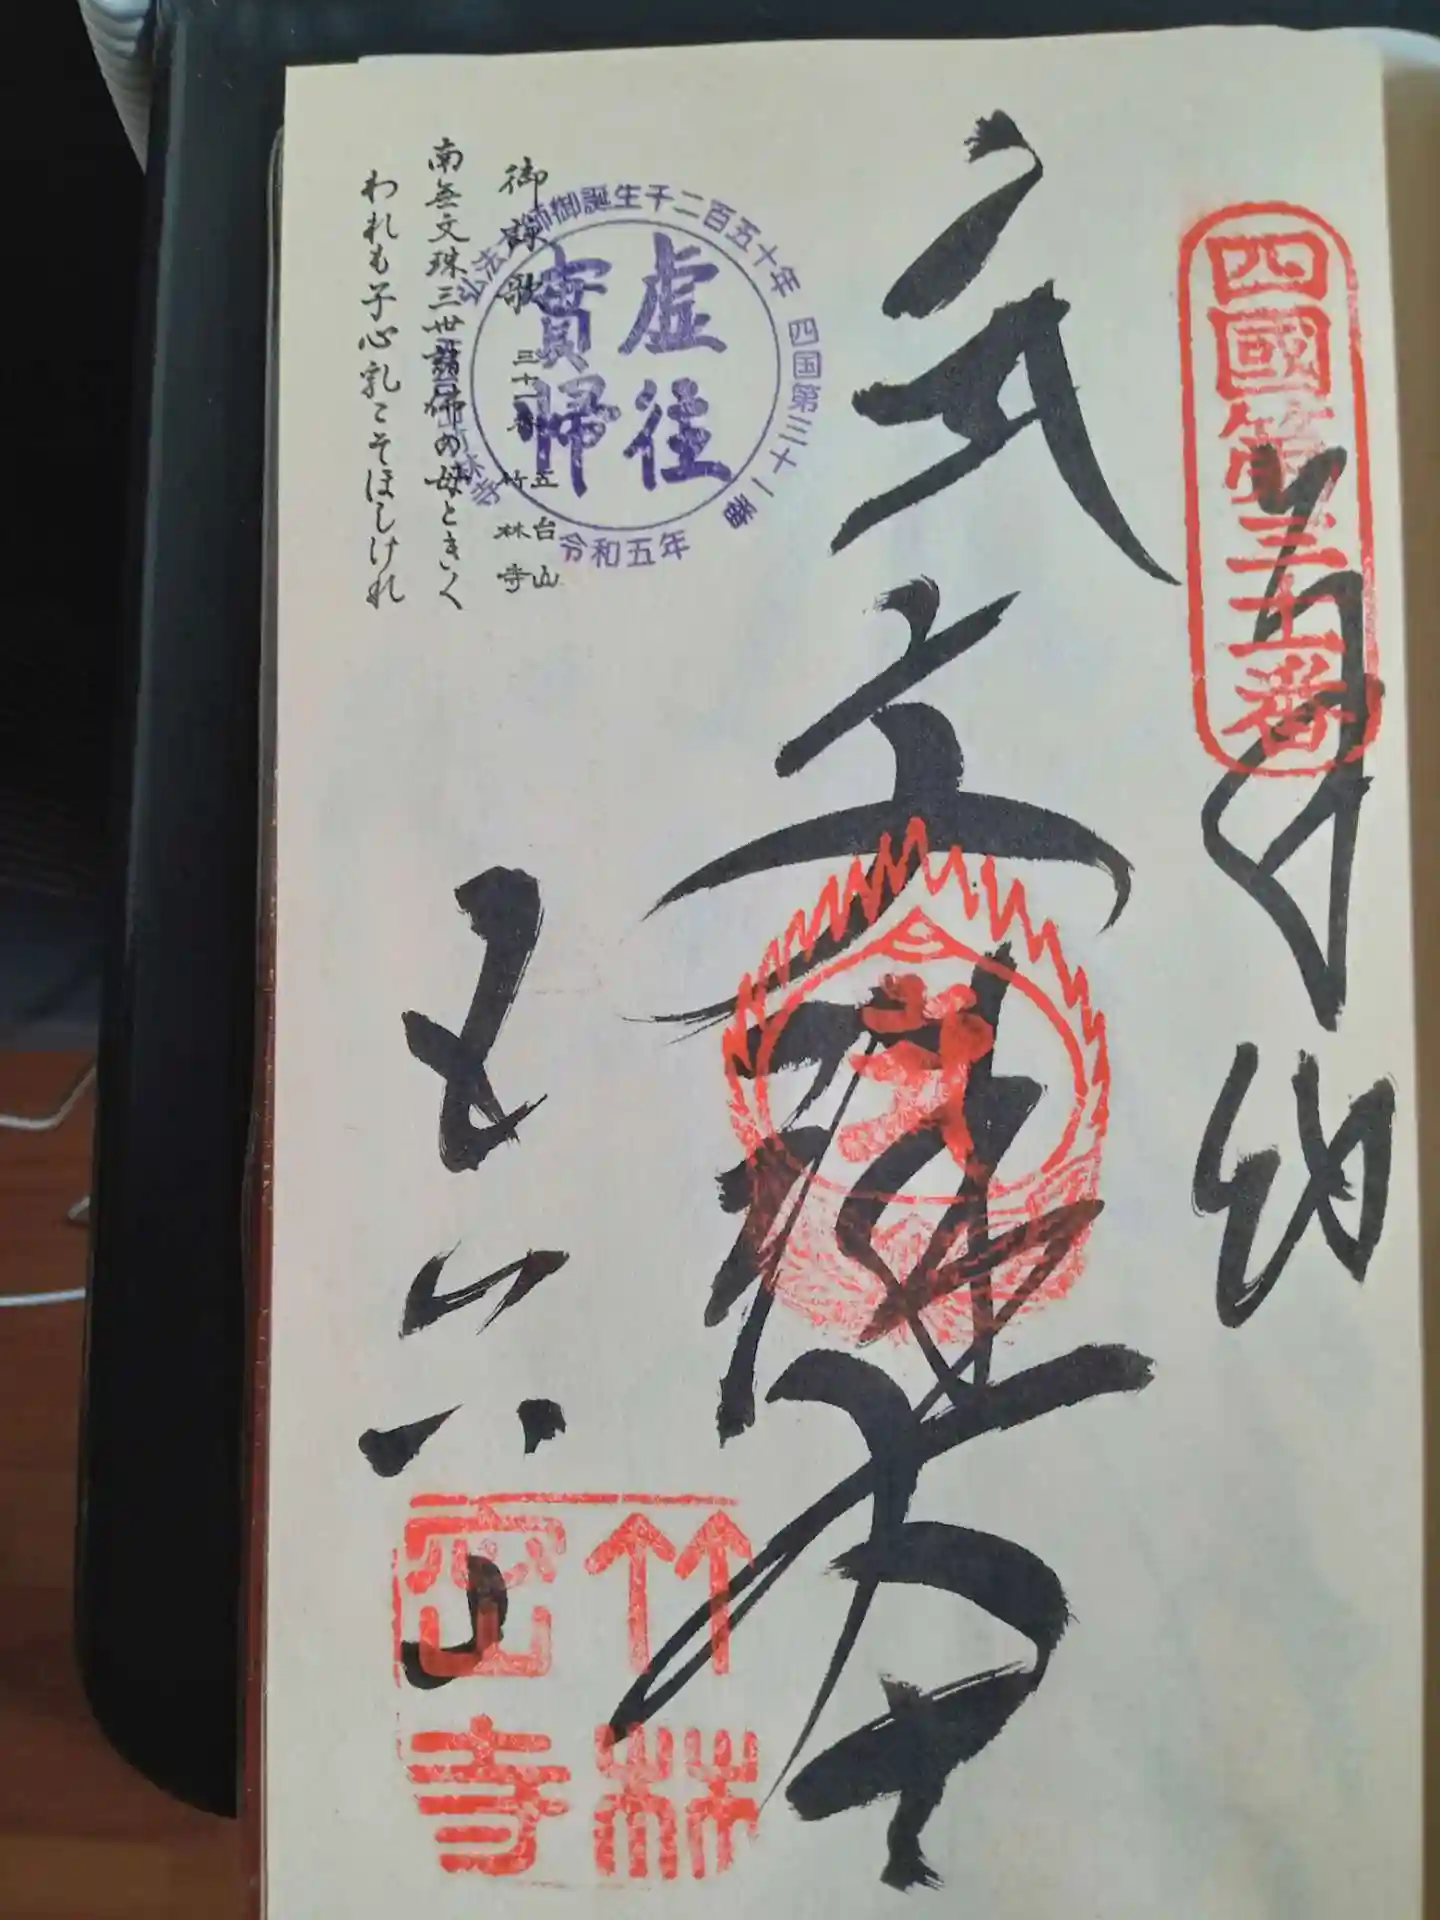 四國第三十一番
奉納
文殊大士
五台山
竹林密寺
弘法大師御誕生千二百五十年
四国第三十一番
竹林寺
令和五年
虚往
實歸
御詠歌 三十一番 五台山 竹林寺
南無文珠三世諸佛の母ときく
われも子心乳こそほしけれ